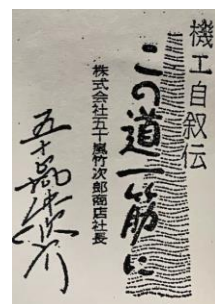 機工自叙伝
この道一筋に
株式会社五十嵐竹次郎商店社長
五十嵐